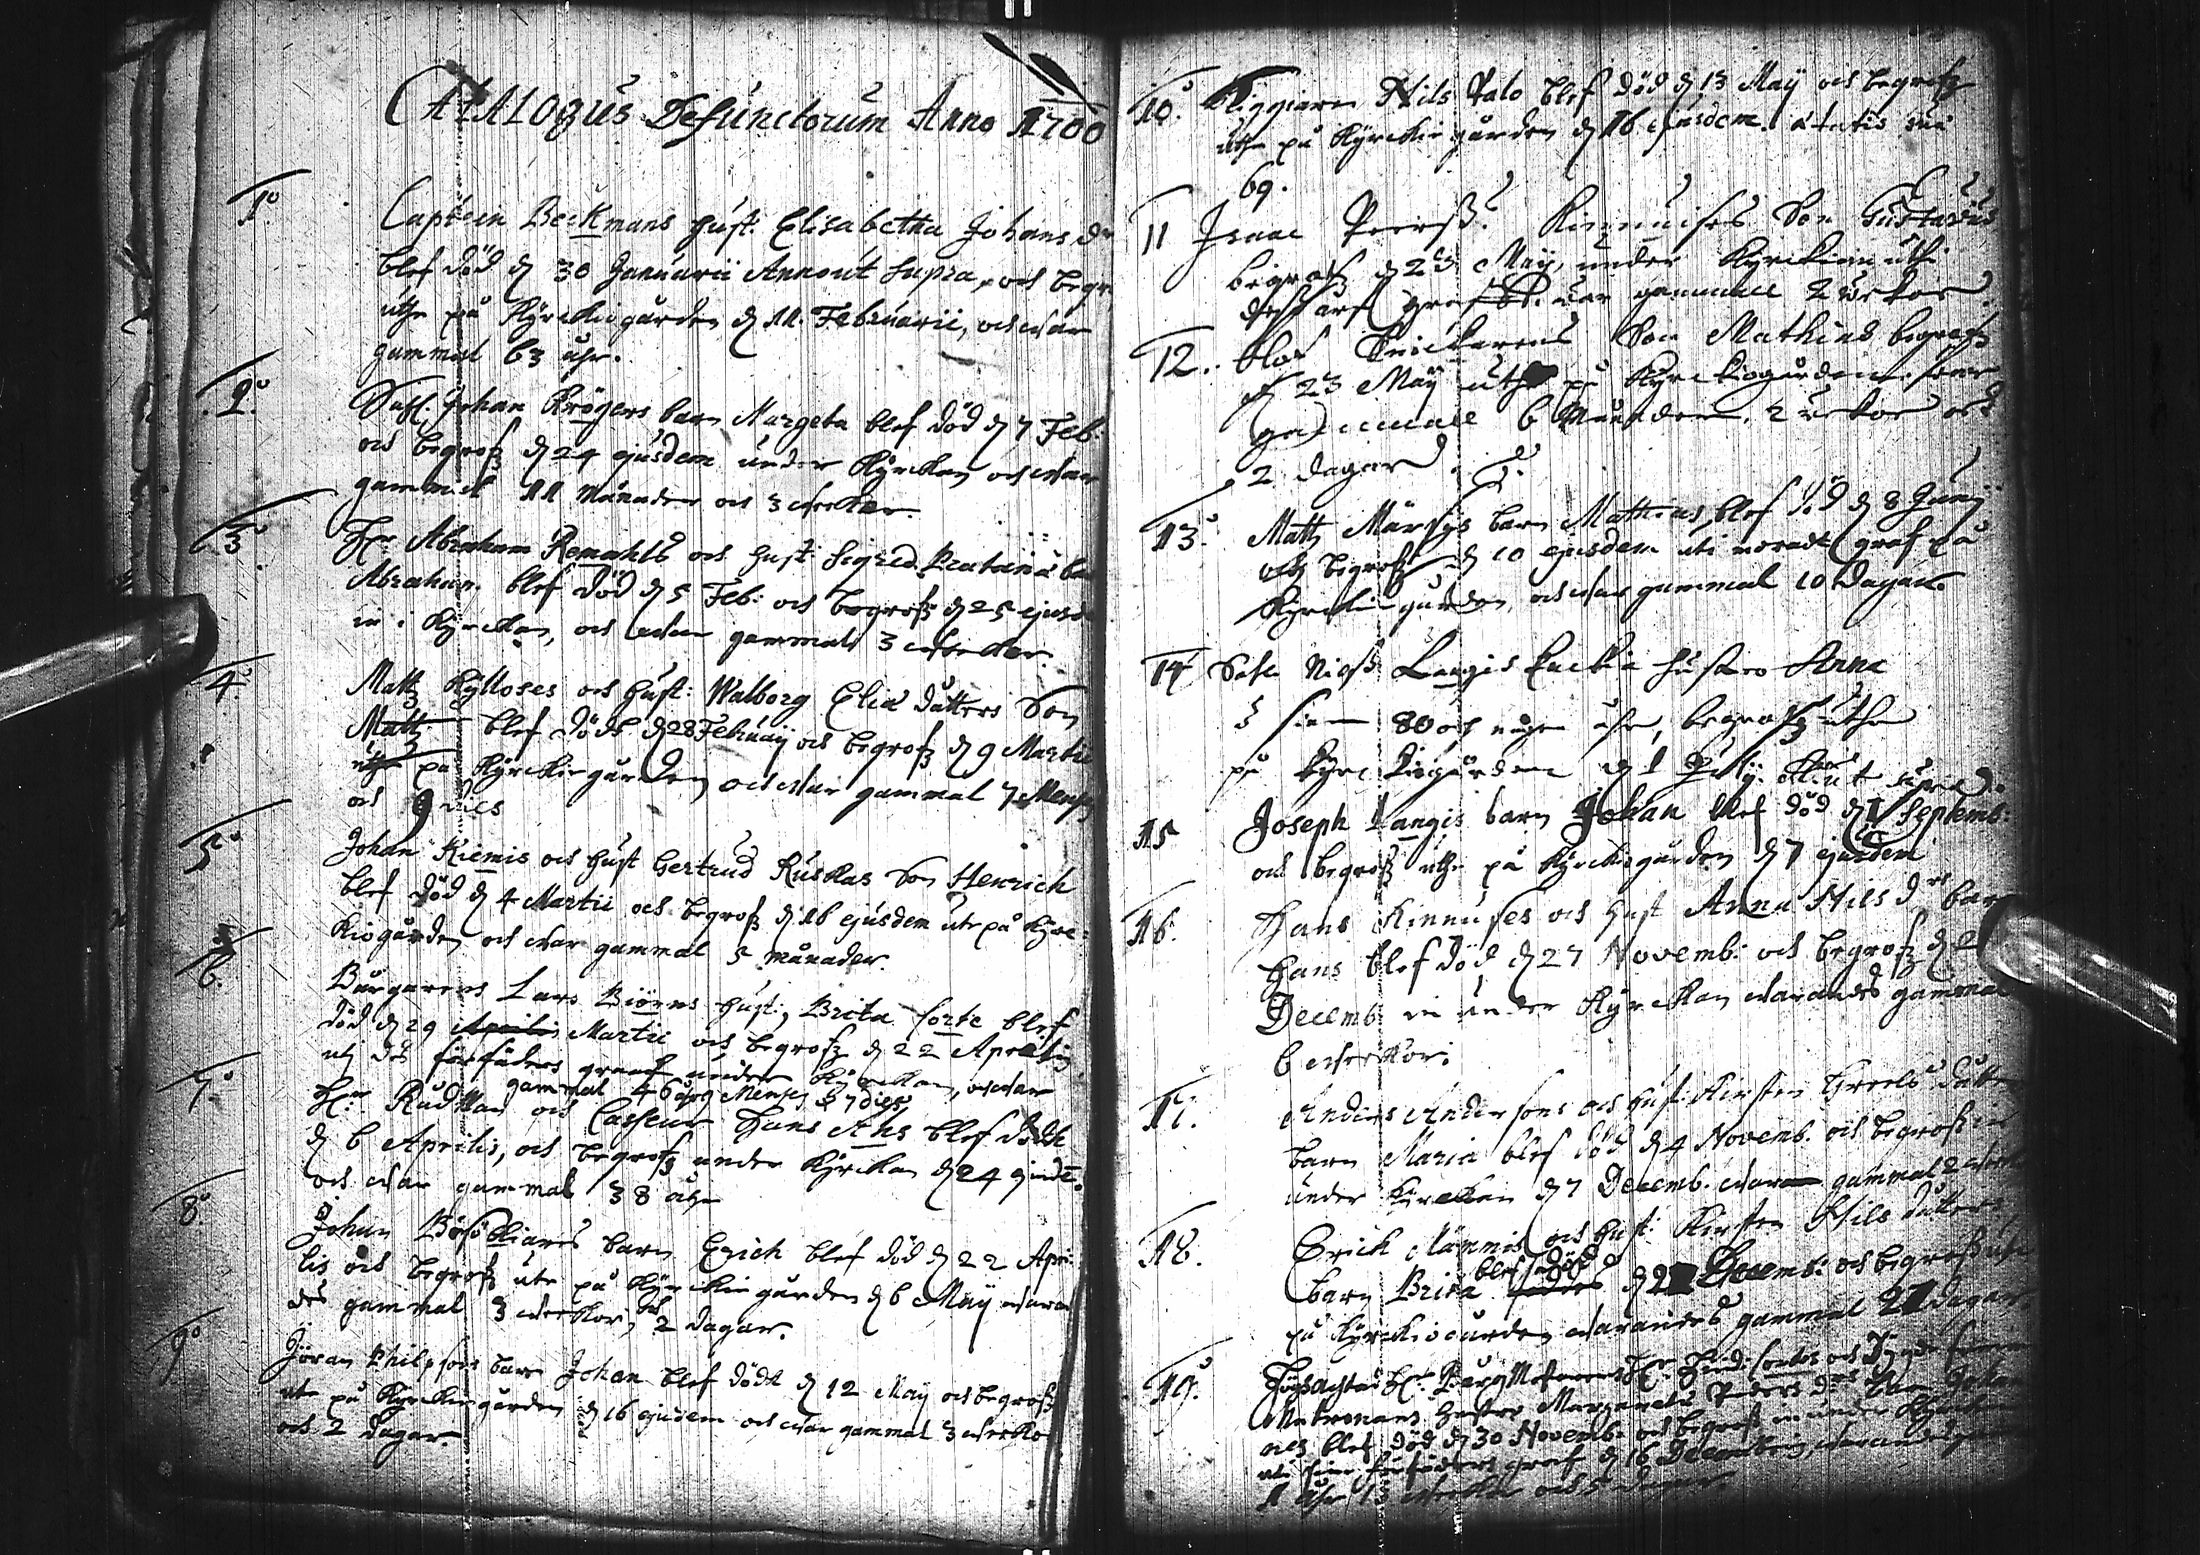 Catalogus Defunctorum Anno 1700
1o
Captein Beckmans hust. Elisabetha Johans dr
blef död d 30 Januarii Anno ut supra, och begr.
uthe på Kyrckiogården d 11. Februarii, och war
gammal 63 åhr.
2o
Sahl. Johan Krögers barn Margeta blef död d 7 Feb:
och begrofz d 24 ejusdem under Kyrckan och war
gammal 11 Månader och 3 weckor.
3o
Hr Abraham Remahls och hust. Sigred
Abraham blef död d 5 Feb: och begrofz d 25 ejusd
in i Kyrckan, och war gammal 3 weckor.
4o
Matz Kylloses och hust: Walborg Elia dutters Son
Matz blef dödt d 28 Februarij och begrofz d 9 Martii
uthe på Kyrckiogården och war gammal 7 Menses
och 9 dies
5o
Johan Kiemis och hust Gertrud Ruskas Son Henrich
blef död d 4 Martii och begrofz d 16 ejusdem ute på Kyrc-
kiogården och war gammal 5 månader.
6.
Burgarens Lars Biörns hust; Brita Forte blef
död d 29 Aprilis Martii och begrofz d 22 Aprilis
uti des förfäders graf under Kyrckan, och war
gammal 46 åhr 9 Menses 7 dies,
7o
Hr Rådman och Casseur Hans Ahs blef dödh
d 6 Aprilis, och begrofz under Kyrckan d 24 ejusde.
och war gammal 38 åhr
8o
Johan barn Erich blef död d 22 Apri-
lis och begrofz ute på Kyrckiogården d 6 Maij waran
des gammal 3 weckor och 2 dagar.
9o
Jöran Philpsons barn Johan blef dödt d 12 Maij och begrofz
ute på Kyrckiogården d 16 ejusdem och war gammal 3 weckor
och 2 dagar.
10. Nils Palo blef död d 13 Maij och begrofz
uthe på Kyrckiogården d 16 ejusdem. ætatis suæ
69.
11 Isaac Son Gustavus
begrofz d 23 Maij, under Kyrckian uthi
graf war gammall 2 weckor.
12. Olof Son Mathias begrofz
d 23 Maij uthe på Kyrckiogården som
gammall 6 Månader, 2 weckor och
2 dagar
13. Matz barn Mathias, blef död d 8 Junij
och begrofz d 10 ejusdem graf på
Kyrckiogården, och war gammal 10 dagar.
14 Sahl. Nielss Langis Enckia hustro Anna
80 och någre åhr, begrofz uthe
på Kyrckiogården d 1 Julij. Ao ut supra.
15 Joseph Langis barn Johan blef död d 1 Septemb:
och begrofz uthe på Kyrckiogården d 7 ejusdem
16. Hans Kinnuses och hust Anna Nils drs barn
Hans blef död d 27 Novemb: och begrofz d 2
Decemb in under Kyrckan warandes gammal
6 weckor.
17. Anders Andersons och hust. Kirsten dutters
barn Maria blef död d 4 Novemb. och begrofz in
under Kyrckan d 7 Decemb. waran gammal 2 weck
18. Erick Männis och hust. Kirsten Nils dutters
barn Brita blef död d Decemb: och begrofz ute
på Kyrckiogården warandes gammal dagar
19. Hr BurgMestarens Hr
hustro Margareta drs barn
nes blef död d 30 Novemb: och begrofz in under Kyrckan
uti sine förfäders graf d 16 Decembris, warandes
1 åhr 13 weckor och 5 dagar.